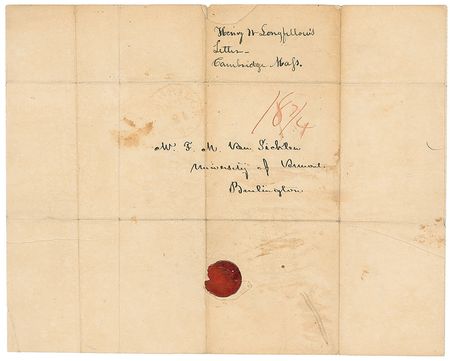 Henry W Longfellow's
Letter-
Cambridge Mass.
18 3/4
Mr. F. M. Van Sicklen
University of Vermont
Burlington